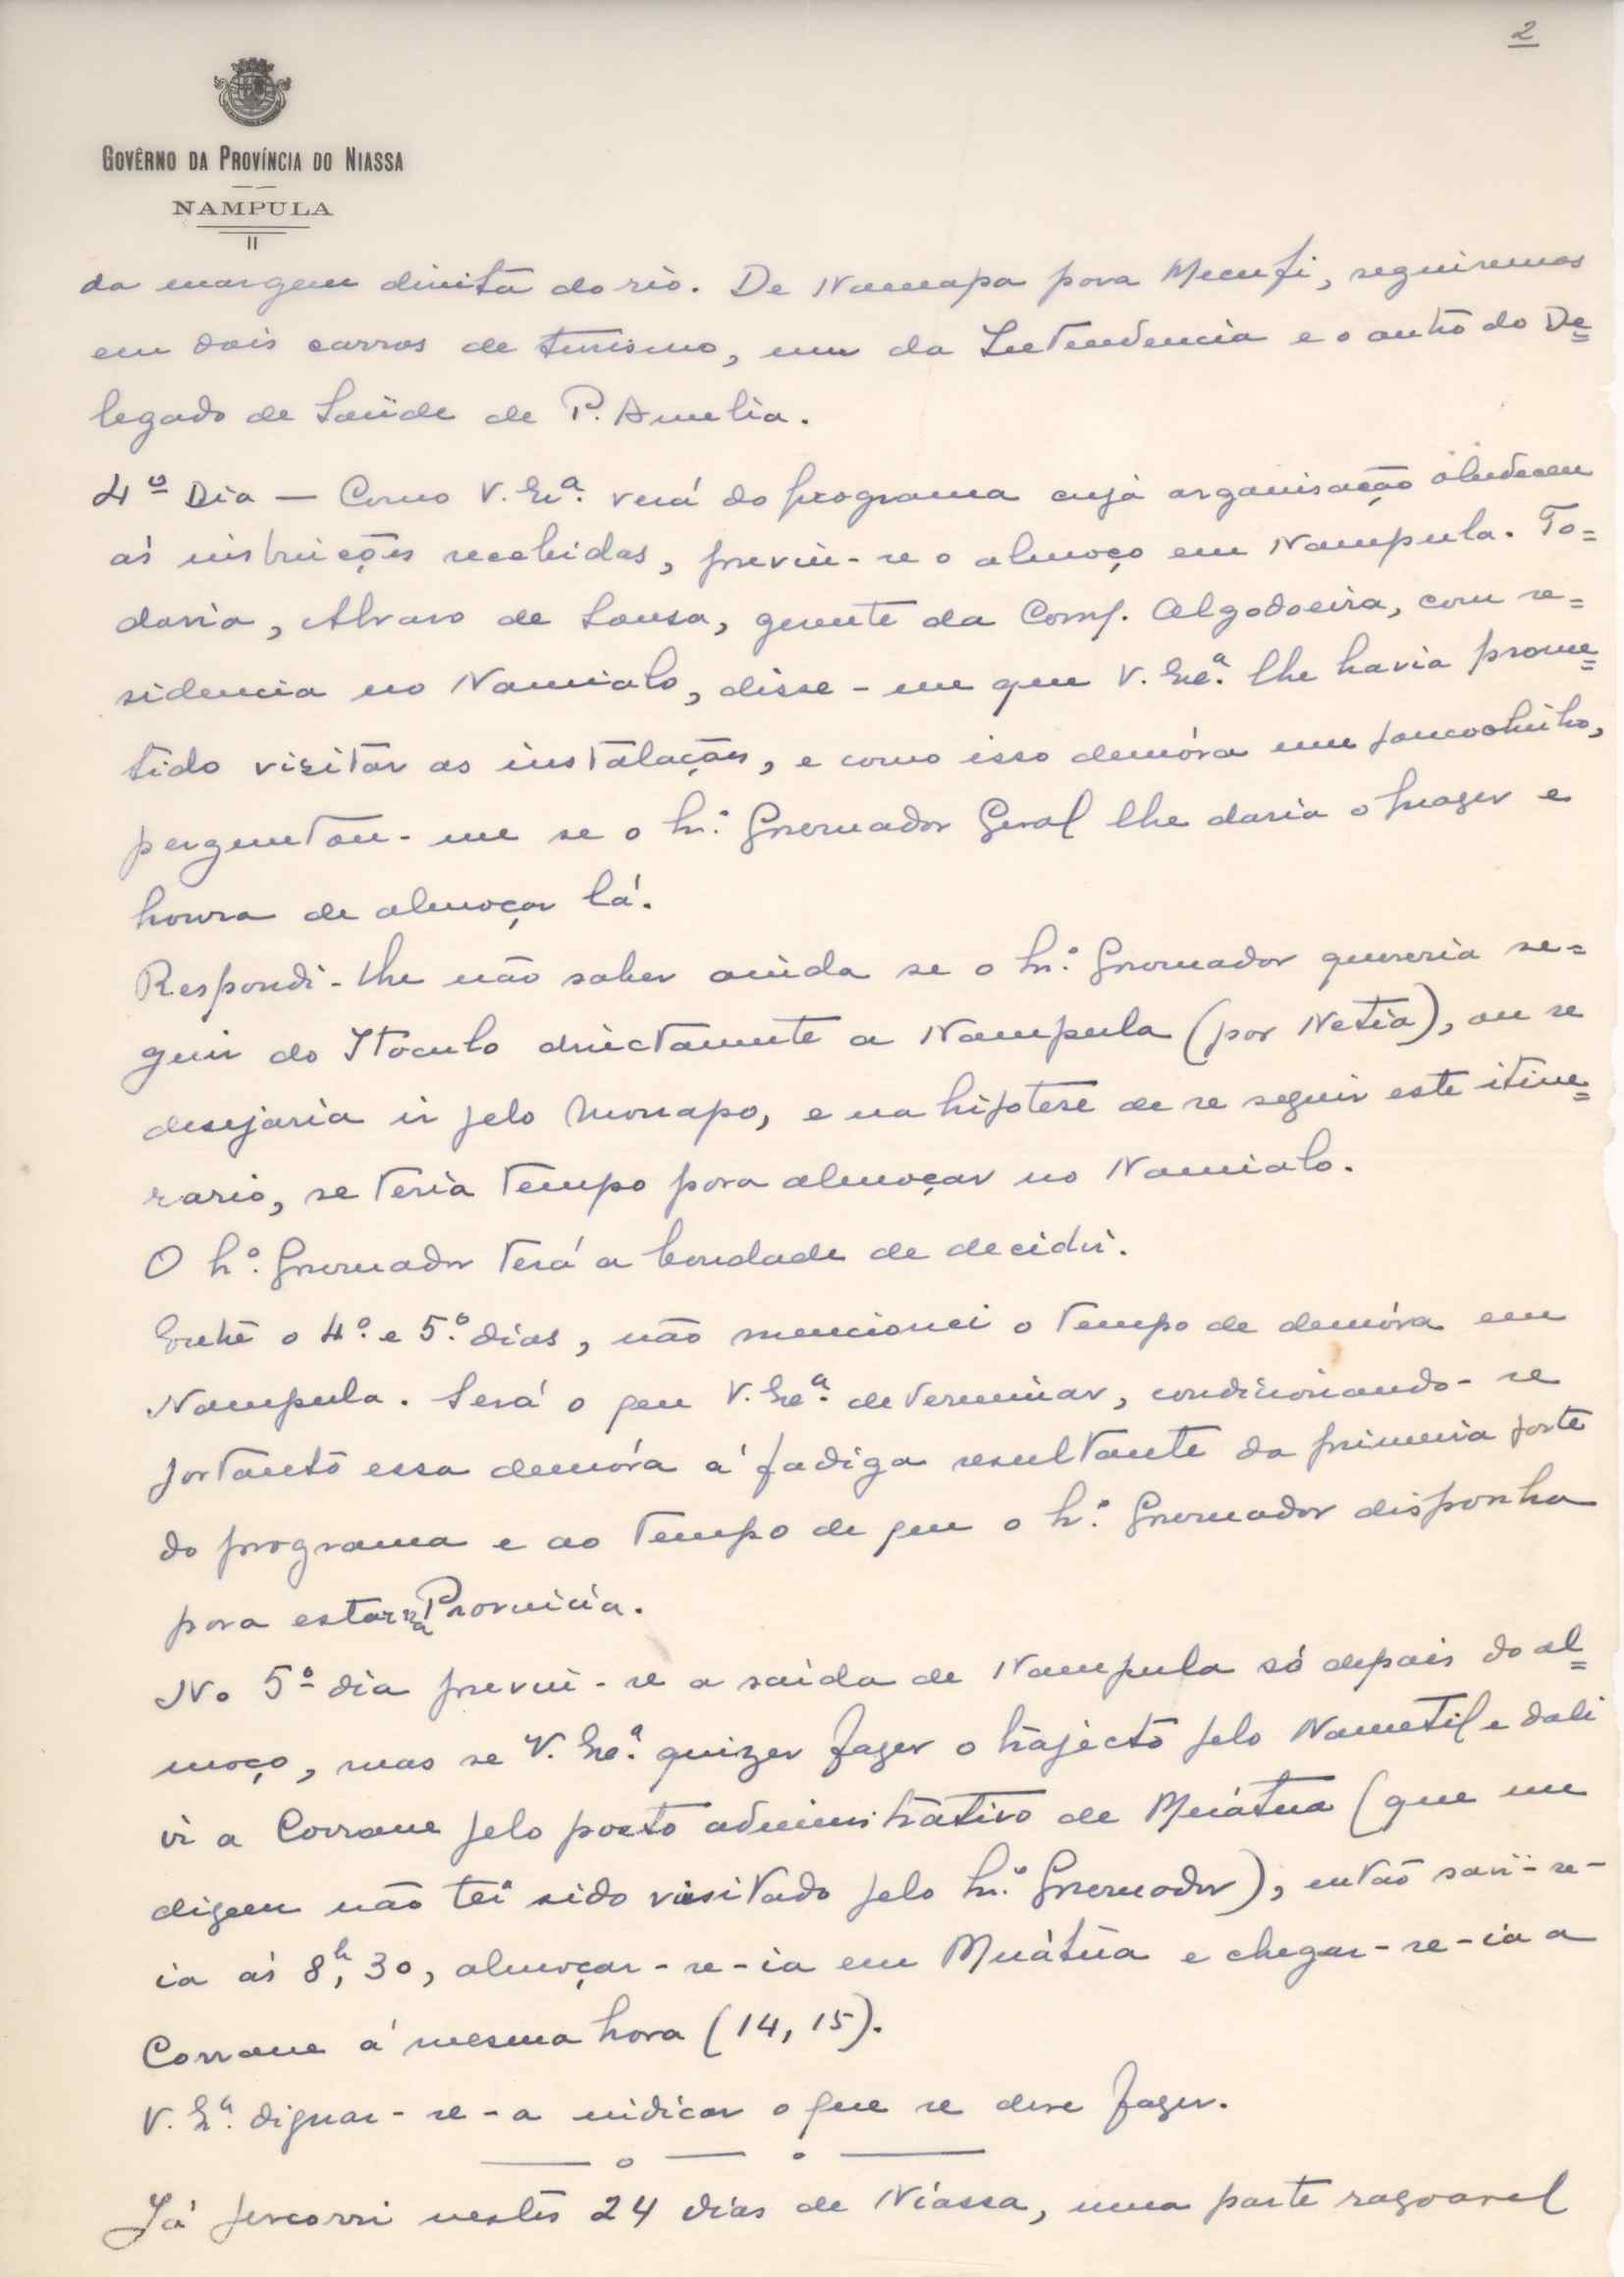 2
GOVÊRNO DA PROVÍNCIA DO NIASSA
NAMPULA
da margem direita do rio. De Namapa para Mecufi, seguiremos
em dois carros de turismo, um da Intendencia e o auto do De=
legado de Saúde de P. Amelia.
4º Dia — Como V. Exª. verá do programa cuja organisação obedeceu
ás instruções recebidas, previu-se o almoço em Nampula. To=
davia, Alvaro de Sousa, gerente da Comp. Algodoeira, com re=
sidencia no Namialo, disse-me que V. Exª. lhe havia prome=
tido visitar as instalações, e como isso demóra um poucochinho,
perguntou-me se o Sr. Governador Geral lhe daria o prazer e
honra de almoçar lá.
Respondi-lhe não saber ainda se o Sr. Governador quereria se=
guir do Itoculo directamente a Nampula (por Netia), ou se
desejaria ir pelo Monapo, e na hipotese de se seguir este itine=
rario, se teria tempo para almoçar no Namialo.
O Sr. Governador terá a bondade de decidir.
Entre o 4º. e 5º. dias, não mencionei o tempo de demóra em
Nampula. Será o que V. Exª. determinar, condicionando-se
portanto essa demóra á fadiga resultante da primeira parte
do programa e ao tempo de que o Sr. Governador disponha
para estar na Provincia.
No 5º dia previu-se a saida de Nampula só depois do al=
moço, mas se V. Exª. quizer fazer o trajécto pelo Nametil e dali
ir a Corrane pelo posto administrativo de Muátua (que me
dizem não ter sido visitado pelo Sr. Governador), então sair-se-
ia ás 8h,30, almoçar-se-ia em Muátua e chegar-se-ia a
Corrane á mesma hora (14,15).
V. Exª. dignar-se-a indicar o que se deve fazer.
Já percorri nestes 24 dias de Niassa, uma parte razoavel